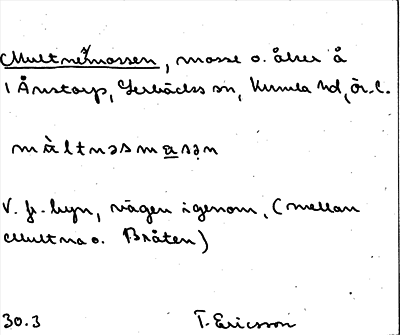 Multnemossen, mosse o. åker å
1 Ånstorp, Lerbäcks sn, Kumla hd, Ör. l.
màltnəsmasən
V. fr. byn, vägen igenom, (mellan
Multna o. Bråten)
30.3 T. Ericsson